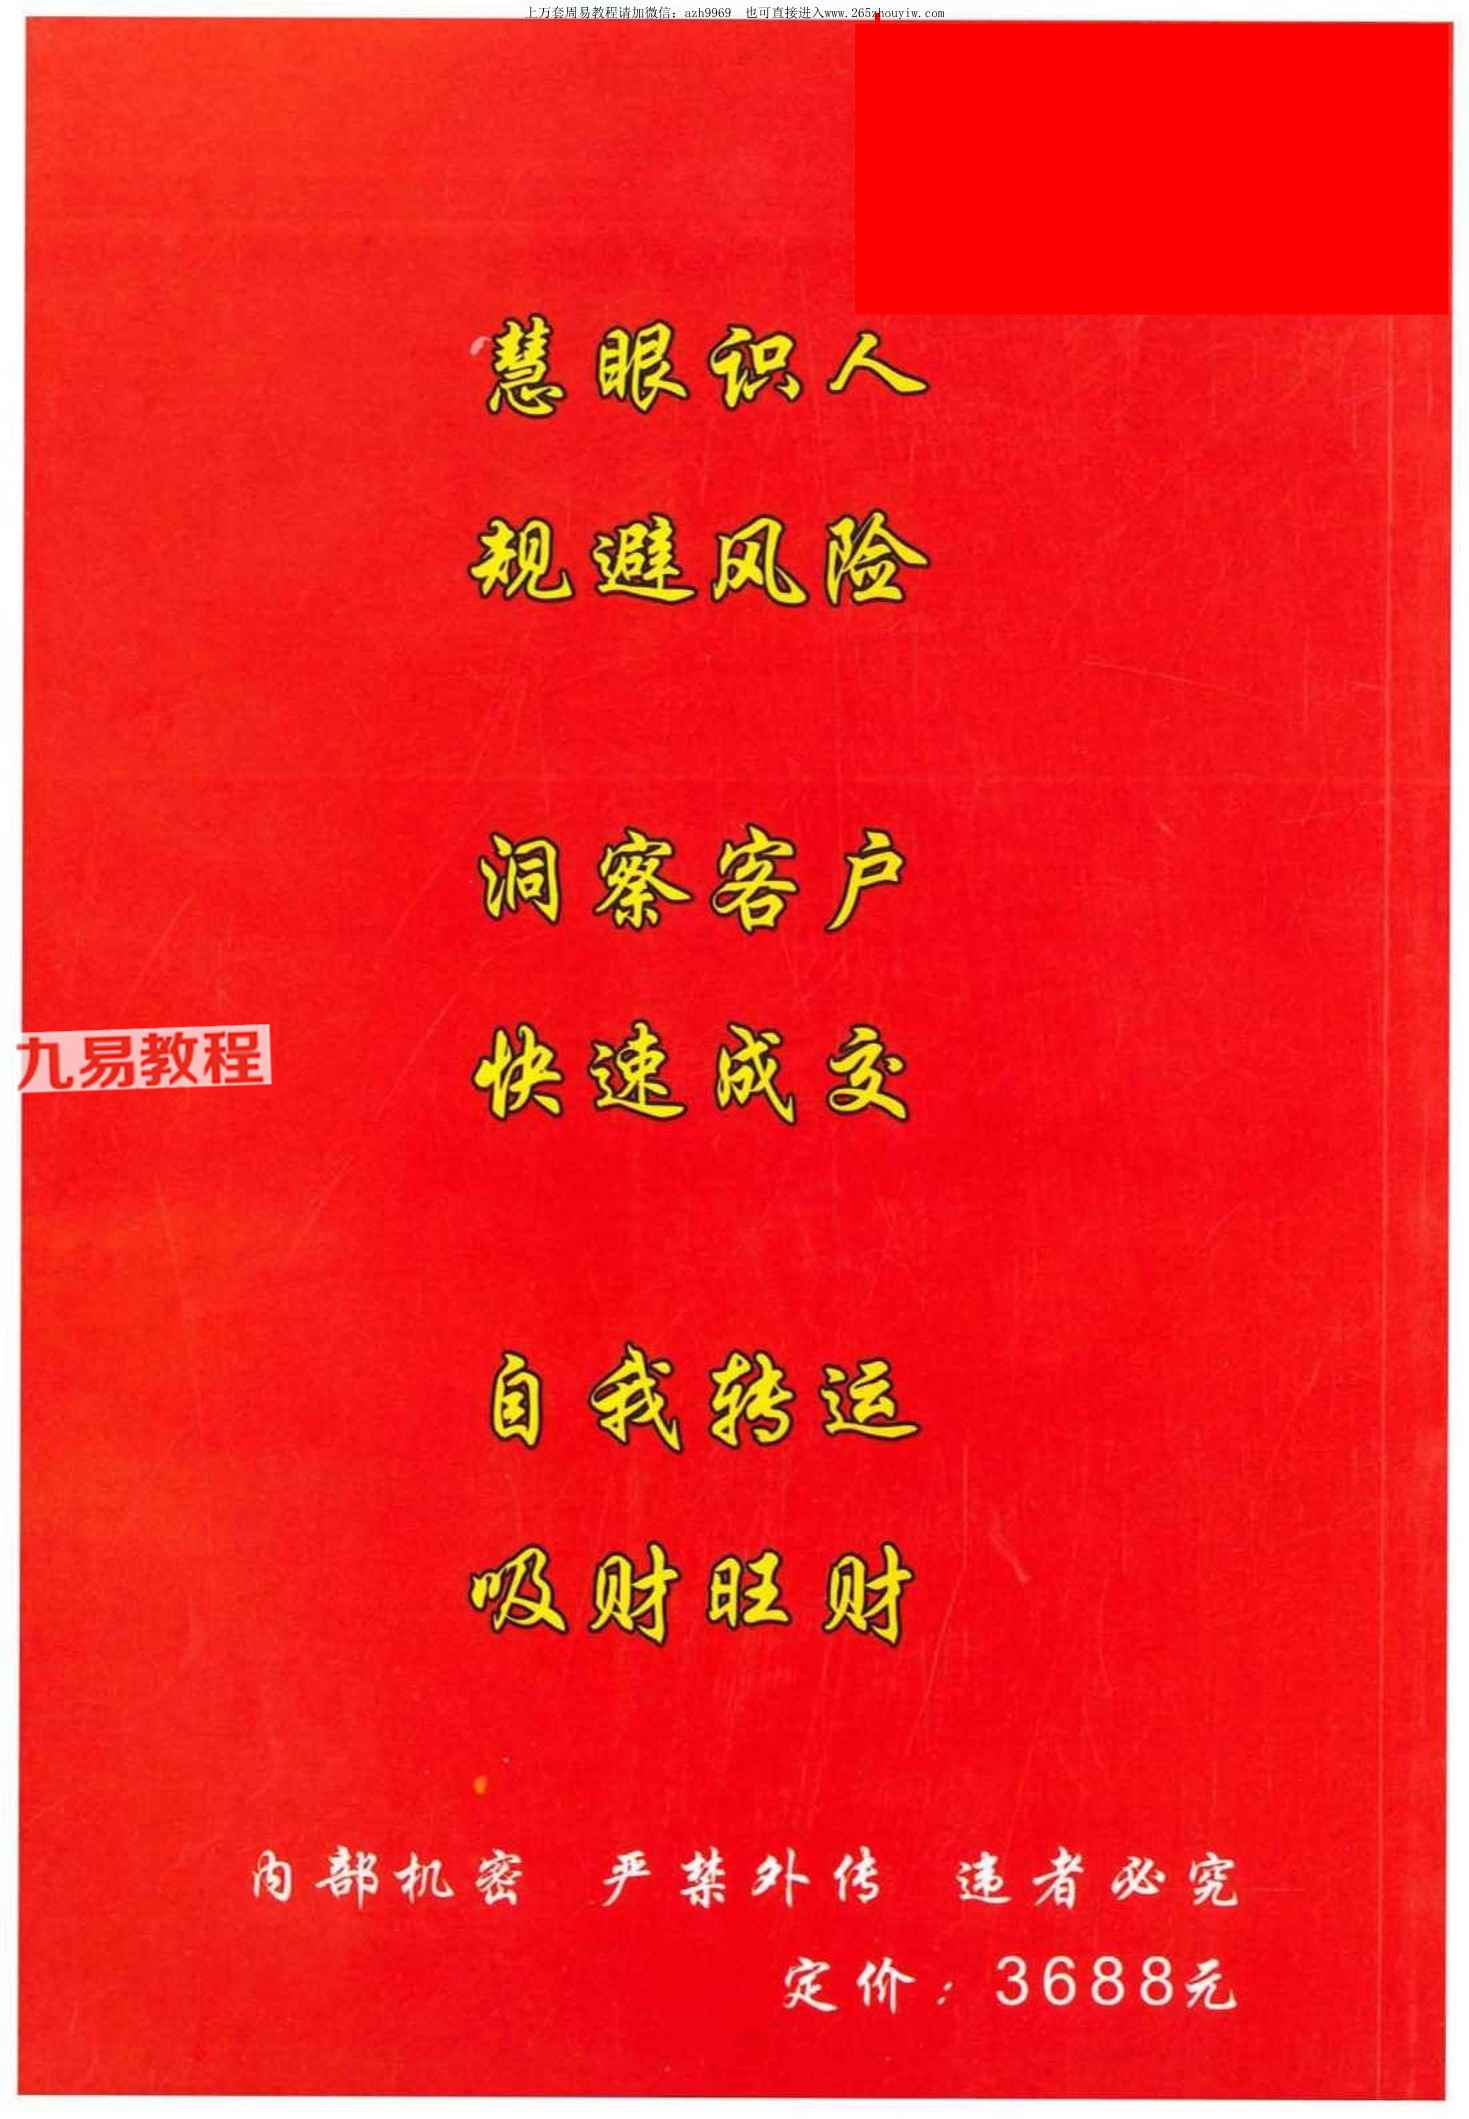 上万套周易教程请加微信：azh9969 也可直接进入www.265zhouyiw.com
慧眼识人
规避风险
洞察客户
九易教程
快速成交
自我转运
吸财旺财
内部机密 严禁外传 违者必究
定价：3688元